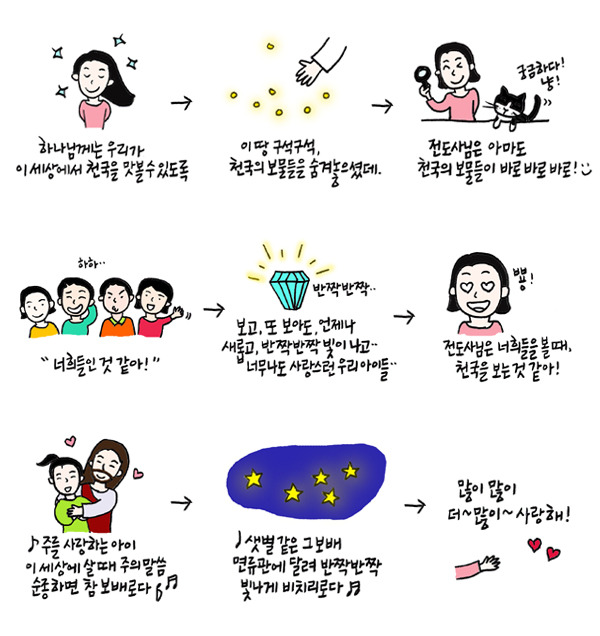 하나님께는 우리가
이 세상에서 천국을 맛볼 수 있도록
이 땅 구석구석,
천국의 보물들을 숨겨놓으셨데.
궁금하다!
냥!
전도사님은 아마도
천국의 보물들이 바로 바로 바로!
하하..
"너희들인 것 같아!"
반짝반짝..
보고, 또 보아도, 언제나
새롭고, 반짝반짝 빛이 나고..
너무나도 사랑스런 우리 아이들..
뿅!
전도사님은 너희들을 볼 때,
천국을 보는 것 같아!
♪ 주를 사랑하는 아이
이 세상에 살 때 주의 말씀
순종하면 참 보배로다 ♬
♩ 샛별 같은 그 보배
면류관에 달려 반짝반짝
빛나게 비치리로다 ♬
많이 많이
더~많이~ 사랑해!